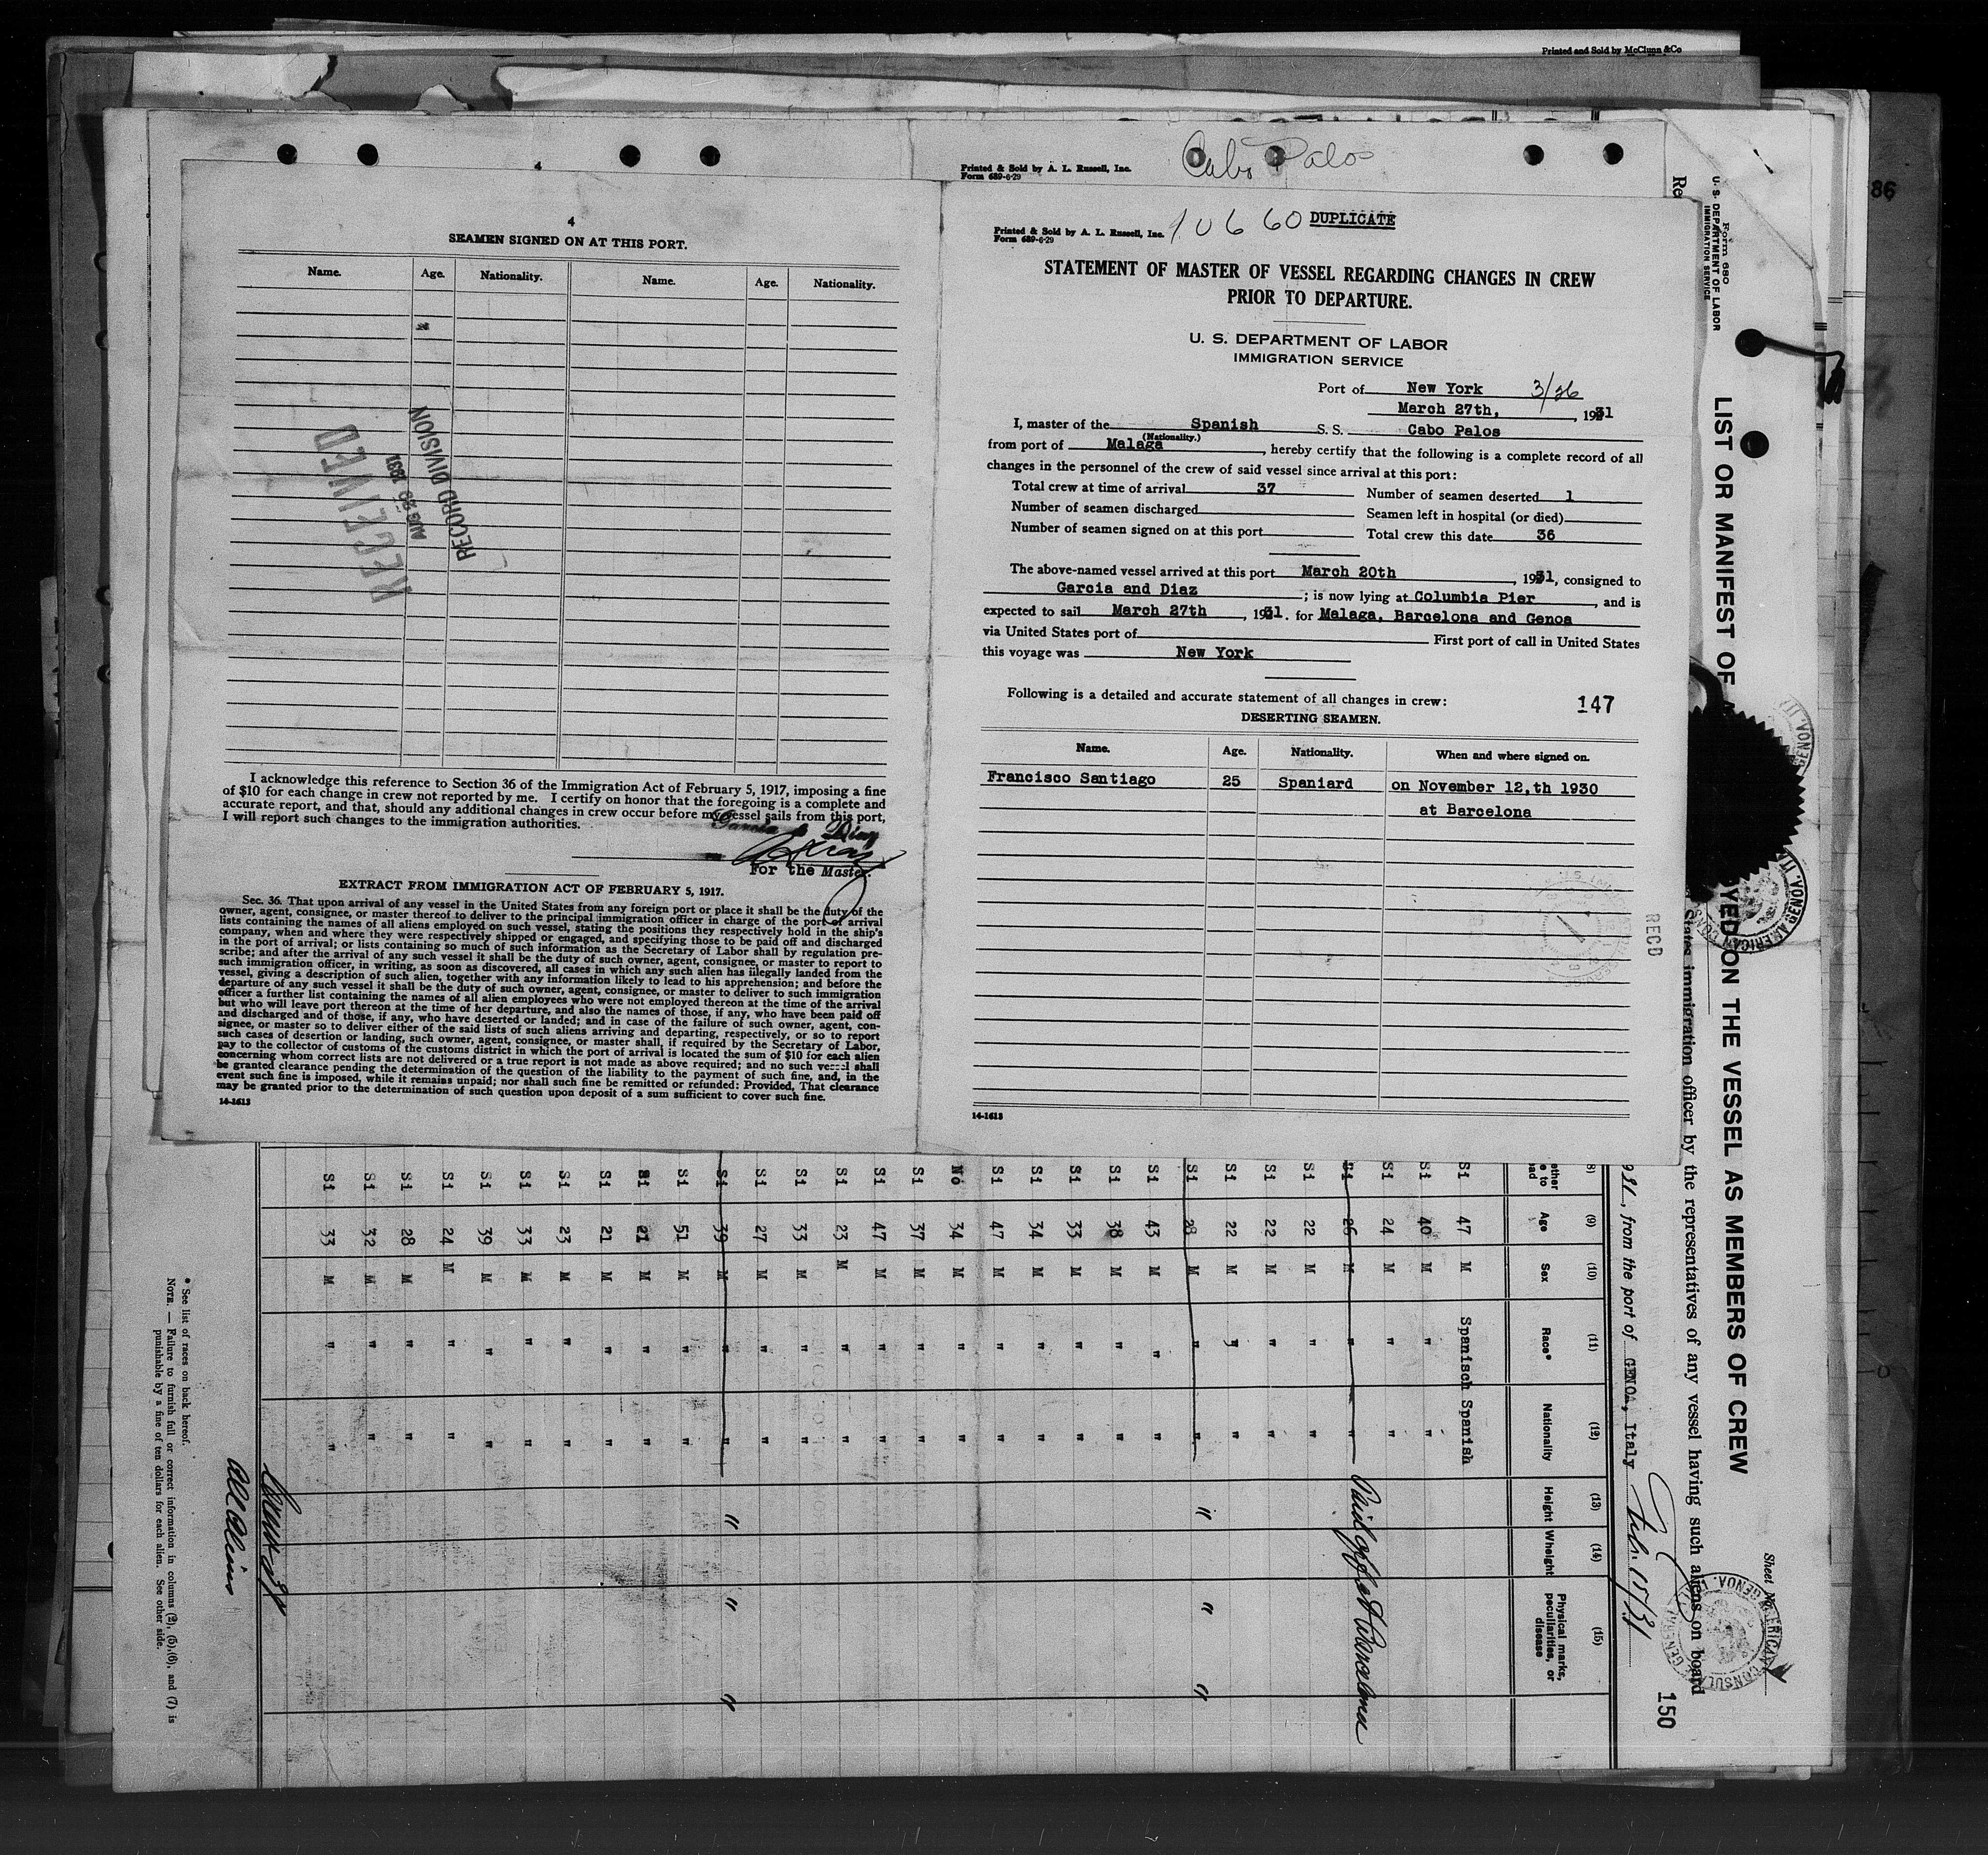 Printed and Sold by McClunn & Co
86
4
4
SEAMEN SIGNED ON AT THIS PORT.
Name. Age. Nationality. Name. Age. Nationality.
RECEIVED
AUG 22 1931
RECORD DIVISION
I acknowledge this reference to Section 36 of the Immigration Act of February 5, 1917, imposing a fine
of $10 for each change in crew not reported by me. I certify on honor that the foregoing is a complete and
accurate report, and that, should any additional changes in crew occur before my vessel sails from this port,
I will report such changes to the immigration authorities.
Garcia & Diaz
For the Master.
EXTRACT FROM IMMIGRATION ACT OF FEBRUARY 5, 1917.
Sec. 36. That upon arrival of any vessel in the United States from any foreign port or place it shall be the duty of the
owner, agent, consignee, or master thereof to deliver to the principal immigration officer in charge of the port of arrival
lists containing the names of all aliens employed on such vessel, stating the positions they respectively hold in the ship's
company, when and where they were respectively shipped or engaged, and specifying those to be paid off and discharged
in the port of arrival; or lists containing so much of such information as the Secretary of Labor shall by regulation pre-
scribe; and after the arrival of any such vessel it shall be the duty of such owner, agent, consignee, or master to report to
such immigration officer, in writing, as soon as discovered, all cases in which any such alien has illegally landed from the
vessel, giving a description of such alien, together with any information likely to lead to his apprehension; and before the
departure of any such vessel it shall be the duty of such owner, agent, consignee, or master to deliver to such immigration
officer a further list containing the names of all alien employees who were not employed thereon at the time of the arrival
but who will leave port thereon at the time of her departure, and also the names of those, if any, who have been paid off
and discharged and of those, if any, who have deserted or landed; and in case of the failure of such owner, agent, con-
signee, or master so to deliver either of the said lists of such aliens arriving and departing, respectively, or so to report
such cases of desertion or landing, such owner, agent, consignee, or master shall, if required by the Secretary of Labor,
pay to the collector of customs of the customs district in which the port of arrival is located the sum of $10 for each alien
concerning whom correct lists are not delivered or a true report is not made as above required; and no such vessel shall
be granted clearance pending the determination of the question of the liability to the payment of such fine, and, in the
event such fine is imposed, while it remains unpaid; nor shall such fine be remitted or refunded: Provided, That clearance
may be granted prior to the determination of such question upon deposit of a sum sufficient to cover such fine.
14-1613
Printed & Sold by A. L. Russell, Inc.
Form 689-6-29
Cabo Palos
Printed & Sold by A. L. Russell, Inc.
Form 689-6-29
10660 DUPLICATE
STATEMENT OF MASTER OF VESSEL REGARDING CHANGES IN CREW
PRIOR TO DEPARTURE.
U. S. DEPARTMENT OF LABOR
IMMIGRATION SERVICE
Port of New York 3/26
March 27th, 1931
I, master of the Spanish S. S. Cabo Palos
(Nationality.)
from port of Malaga, hereby certify that the following is a complete record of all
changes in the personnel of the crew of said vessel since arrival at this port:
Total crew at time of arrival 37 Number of seamen deserted 1
Number of seamen discharged Seamen left in hospital (or died)
Number of seamen signed on at this port Total crew this date 36
The above-named vessel arrived at this port March 20th, 1931, consigned to
Garcia and Diaz; is now lying at Columbia Pier, and is
expected to sail March 27th, 1931. for Malaga, Barcelona and Genoa
via United States port of First port of call in United States
this voyage was New York
Following is a detailed and accurate statement of all changes in crew: 147
DESERTING SEAMEN.
Name. Age. Nationality. When and where signed on.
Francisco Santiago 25 Spaniard on November 12,th 1930
at Barcelona
RECD
14-1613
Form 680
U. S. DEPARTMENT OF LABOR
IMMIGRATION SERVICE
LIST OR MANIFEST OF
YED ON THE VESSEL AS MEMBERS OF CREW
States immigration officer by the representatives of any vessel having such aliens on board
931, from the port of GENOA, Italy Feb. 15/31
Sheet No.
AMERICAN CONSULATE GENERAL
GENOA.
150
(8) (9) (10) (11) (12) (13) (14) (15)
Age Sex Race* Nationality Height Wheight Physical marks, peculiarities, or disease
Si 47 M Spanisch Spanish
Si 40 M " "
Si 24 M " "
Si 26 M " " Paid off at Barcelona
Si 22 M " "
Si 22 M " "
Si 22 M " "
Si 28 M " " " " "
Si 43 M " "
Si 38 M " "
Si 33 M " "
Si 34 M " "
Si 47 M " "
No 34 M " "
Si 37 M " "
Si 47 M " "
Si 23 M " "
Si 33 M " "
Si 27 M " "
Si 39 M " " " " "
Si 51 M " "
Si 21 M " "
Si 21 M " "
Si 23 M " "
Si 33 M " "
Si 39 M " "
Si 24 M " "
Si 28 M " "
Si 32 M " "
Si 33 M " "
All Aliens
* See list of races on back hereof.
NOTE. — Failure to furnish full or correct information in columns (2), (5), (6), and (7) is
punishable by a fine of ten dollars for each alien. See other side.